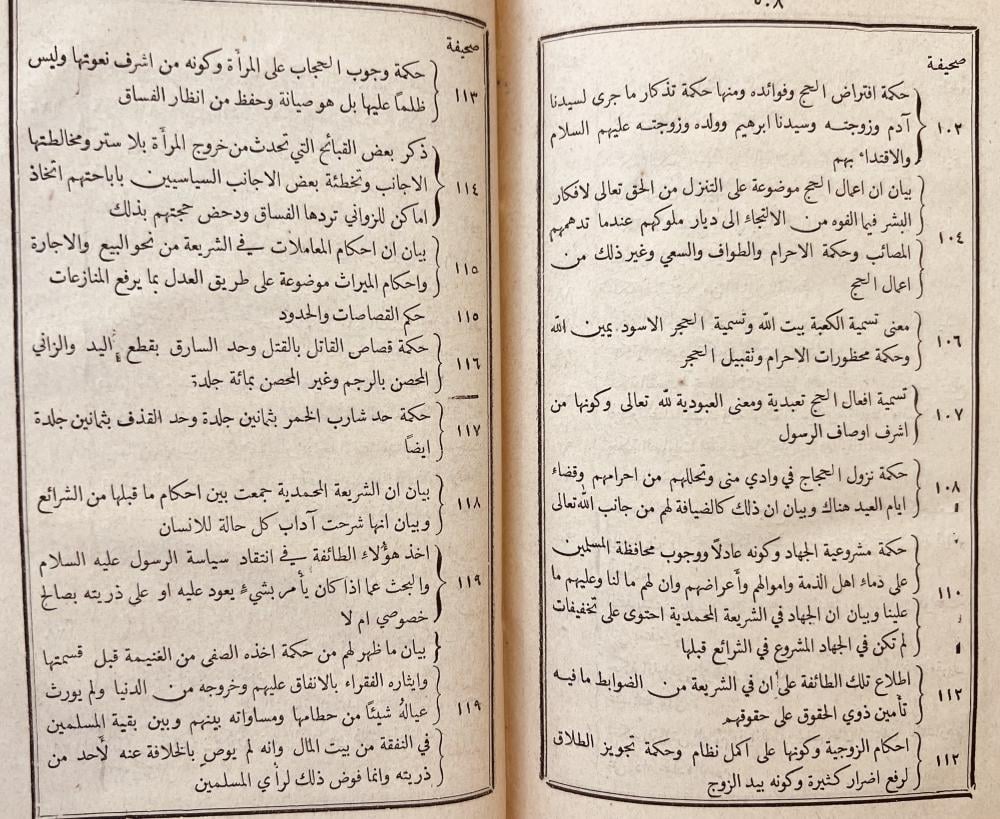 ٥٠٨
صحيفة
١٠٢ حكمة افتراض الحج وفوائده ومنها حكمة تذكار ما جرى لسيدنا
آدم وزوجته وسيدنا ابرهيم وولده وزوجته عليهم السلام
والاقتداء بهم
١٠٤ بيان ان اعمال الحج موضوعة على التنزل من الحق تعالى لافكار
البشر فيما الفوه من الالتجاء الى ديار ملوكهم عندما تدهمهم
المصائب وحكمة الاحرام والطواف والسعي وغير ذلك من
اعمال الحج
١٠٦ معنى تسمية الكعبة بيت الله وتسمية الحجر الاسود يمين الله
وحكمة محظورات الاحرام وتقبيل الحجر
١٠٧ تسمية افعال الحج تعبدية ومعنى العبودية لله تعالى وكونها من
اشرف اوصاف الرسول
١٠٨ حكمة نزول الحجاج في وادي منى وتحللهم من احرامهم وقضاء
ايام العيد هناك وبيان ان ذلك كالضيافة لهم من جانب الله تعالى
١١٠ حكمة مشروعية الجهاد وكونه عادلاً ووجوب محافظة المسلمين
على دماء اهل الذمة واموالهم وأعراضهم وان لهم ما لنا وعليهم ما
علينا وبيان ان الجهاد في الشريعة المحمدية احتوى على تخفيفات
لم تكن في الجهاد المشروع في الشرائع قبلها
١١٢ اطلاع تلك الطائفة على ان في الشريعة من الضوابط ما فيه
تأمين ذوي الحقوق على حقوقهم
١١٢ احكام الزوجية وكونها على اكمل نظام وحكمة تجويز الطلاق
لرفع اضرار كثيرة وكونه بيد الزوج
صحيفة
١١٣ حكمة وجوب الحجاب على المرأة وكونه من اشرف نعوتها وليس
ظلماً عليها بل هو صيانة وحفظ من انظار الفساق
١١٤ ذكر بعض القبائح التي تحدث من خروج المرأة بلا ستر ومخالطتها
الاجانب وتخطئة بعض الاجانب السياسيين باباحتهم اتخاذ
اماكن للزواني تردها الفساق ودحض حجتهم بذلك
١١٥ بيان ان احكام المعاملات في الشريعة من نحو البيع والاجارة
واحكام الميراث موضوعة على طريق العدل بما يرفع المنازعات
١١٥ حكم القصاصات والحدود
١١٦ حكمة قصاص القاتل بالقتل وحد السارق بقطع اليد والزاني
المحصن بالرجم وغير المحصن بمائة جلدة
١١٧ حكمة حد شارب الخمر بثمانين جلدة وحد القذف بثمانين جلدة
ايضاً
١١٨ بيان ان الشريعة المحمدية جمعت بين احكام ما قبلها من الشرائع
وبيان انها شرحت آداب كل حالة للانسان
١١٩ اخذ هؤلاء الطائفة في انتقاد سياسة الرسول عليه السلام
والبحث عما اذا كان يأمر بشيء يعود عليه او على ذريته بصالح
خصوصي ام لا
بيان ما ظهر لهم من حكمة اخذه الصفى من الغنيمة قبل قسمتها
١١٩ وايثاره الفقراء بالانفاق عليهم وخروجه من الدنيا ولم يورث
عيالهُ شيئاً من حطامها ومساواته بينهم وبين بقية المسلمين
في النفقة من بيت المال وانه لم يوص بالخلافة عنه لأحد من
ذريته وانما فوض ذلك لرأي المسلمين